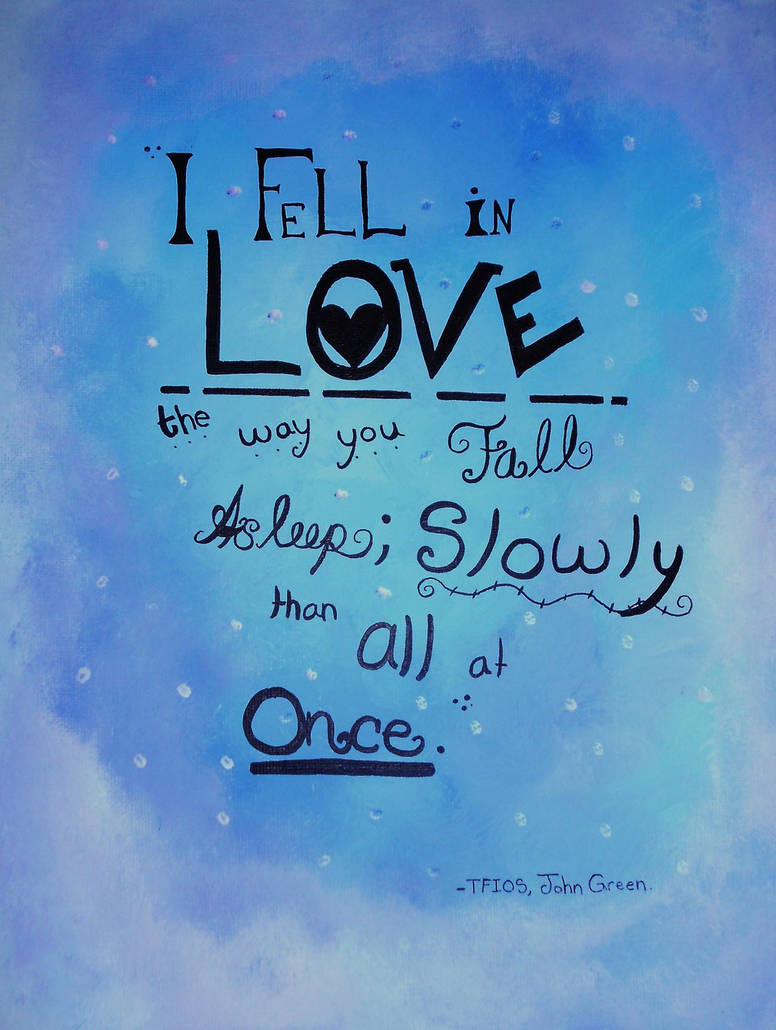 "I FELL in
LOVE
the way you Fall
Asleep; Slowly
than all at
Once."
-TFIOS, John Green.